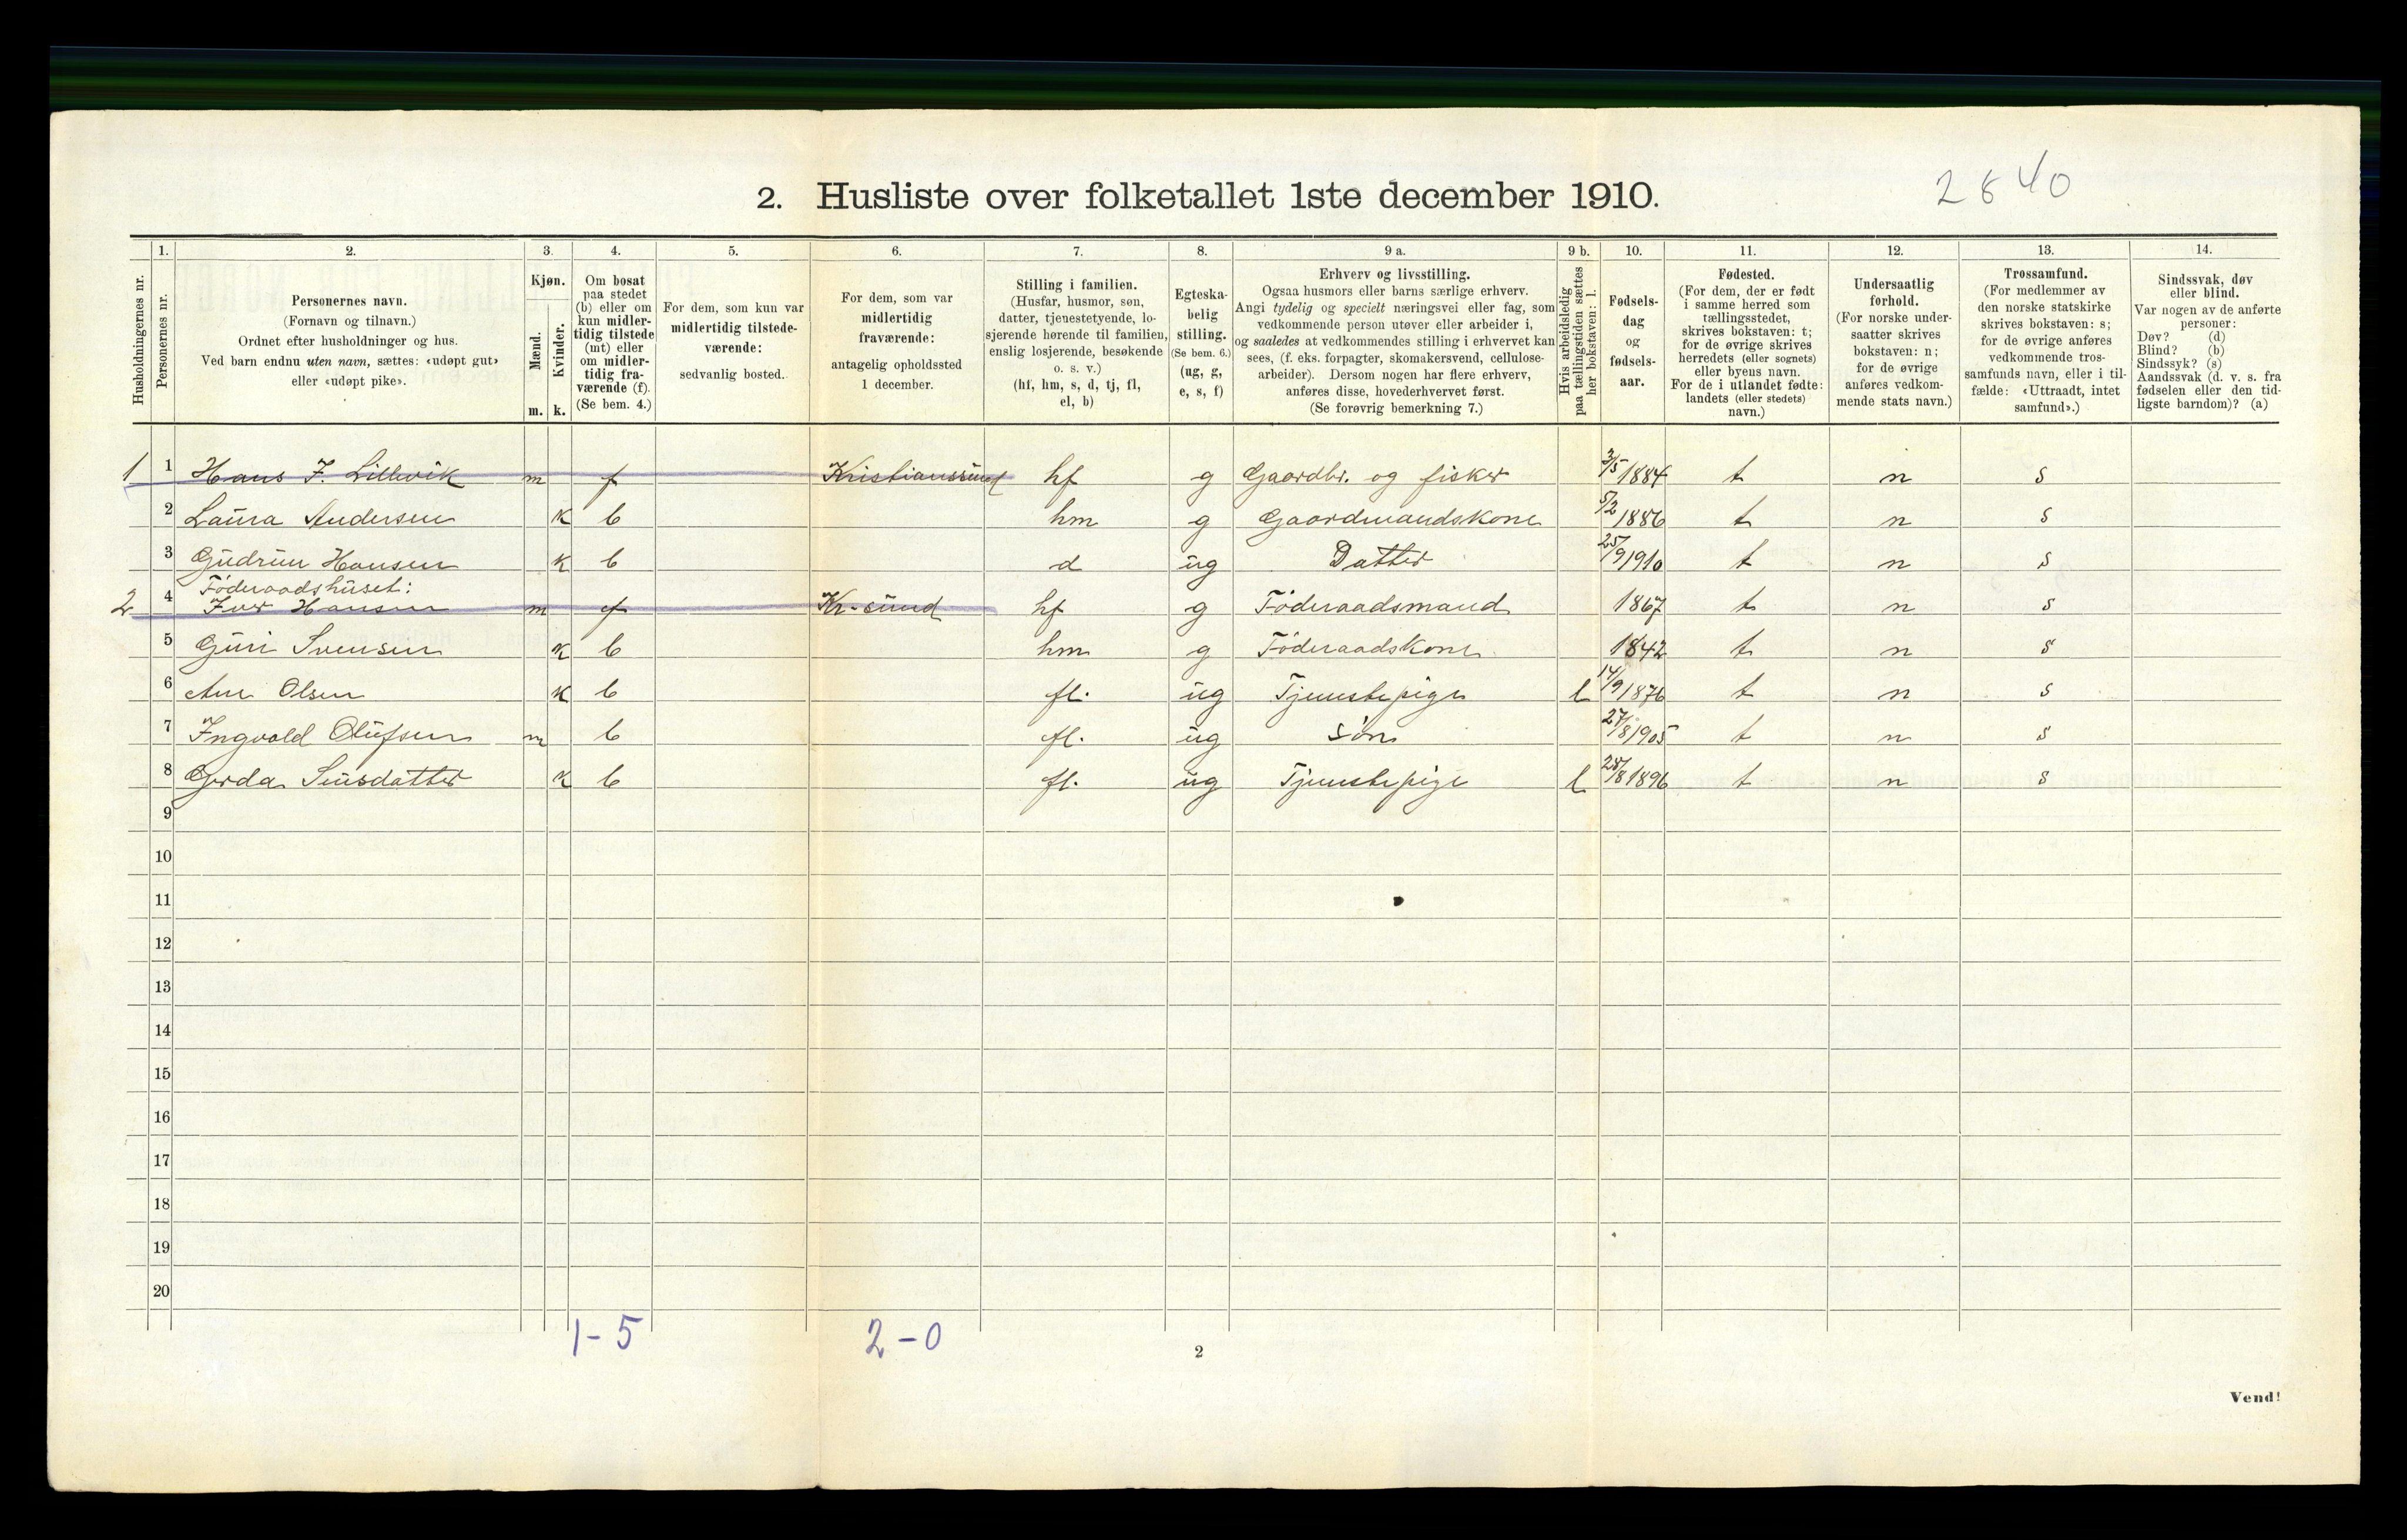 2840
2. Husliste over folketallet 1ste december 1910.
1. 2. 3. 4. 5. 6. 7. 8. 9 a. 9 b. 10. 11. 12. 13. 14.
Husholdningernes nr.
Personernes nr.
Personernes navn.
(Fornavn og tilnavn.)
Ordnet efter husholdninger og hus.
Ved barn endnu uten navn, sættes: «udøpt gut»
eller «udøpt pike».
Kjøn.
Mænd.
Kvinder.
m. k.
Om bosat
paa stedet
(b) eller om
kun midler-
tidig tilstede
(mt) eller
om midler-
tidig fra-
værende (f).
(Se bem. 4.)
For dem, som kun var
midlertidig tilstede-
værende:
sedvanlig bosted.
For dem, som var
midlertidig
fraværende:
antagelig opholdssted
1 december.
Stilling i familien.
(Husfar, husmor, søn,
datter, tjenestetyende, lo-
sjerende hørende til familien,
enslig losjerende, besøkende
o. s. v.)
(hf, hm, s, d, tj, fl,
el, b)
Egteska-
belig
stilling.
(Se bem. 6.)
(ug, g,
e, s, f)
Erhverv og livsstilling.
Ogsaa husmors eller barns særlige erhverv.
Angi tydelig og specielt næringsvei eller fag, som
vedkommende person utøver eller arbeider i,
og saaledes at vedkommendes stilling i erhvervet kan
sees, (f. eks. forpagter, skomakersvend, cellulose-
arbeider). Dersom nogen har flere erhverv,
anføres disse, hovederhvervet først.
(Se forøvrig bemerkning 7.)
Hvis arbeidsledig
paa tællingstiden sættes
her bokstaven: l.
Fødsels-
dag
og
fødsels-
aar.
Fødested.
(For dem, der er født
i samme herred som
tællingsstedet,
skrives bokstaven: t;
for de øvrige skrives
herredets (eller sognets)
eller byens navn.
For de i utlandet fødte:
landets (eller stedets)
navn.)
Undersaatlig
forhold.
(For norske under-
saatter skrives
bokstaven: n;
for de øvrige
anføres vedkom-
mende stats navn.)
Trossamfund.
(For medlemmer av
den norske statskirke
skrives bokstaven: s;
for de øvrige anføres
vedkommende tros-
samfunds navn, eller i til-
fælde: «Uttraadt, intet
samfund».)
Sindssvak, døv
eller blind.
Var nogen av de anførte
personer:
Døv? (d)
Blind? (b)
Sindssyk? (s)
Aandssvak (d. v. s. fra
fødselen eller den tid-
ligste barndom)? (a)
1 1 Hans J. Lillevik m f Kristianssund hf g Gaardbr. og fisker 3/5 1884 t n s
2 Laura Andersen k b hm g Gaardmandskone 5/2 1886 t n s
3 Gudrun Hansen k b d ug Datter 25/9 1910 t n s
Föderaadshuset:
2 4 Iver Hansen m f Kr.sund hf g Föderaadsmand 1867 t n s
5 Guri Svensen k b hm g Föderaadskone 1842 t n s
6 Ane Olsen k b fl. ug Tjenestepige l 14/9 1876 t n s
7 Ingvald Olufsen m b fl. ug Sön 27/8 1905 t n s
8 Gerda Sensdatter k b fl. ug Tjenestepige l 28/8 1896 t n s
9
10
11
12
13
14
15
16
17
18
19
20
1-5 2-0
2
Vend!